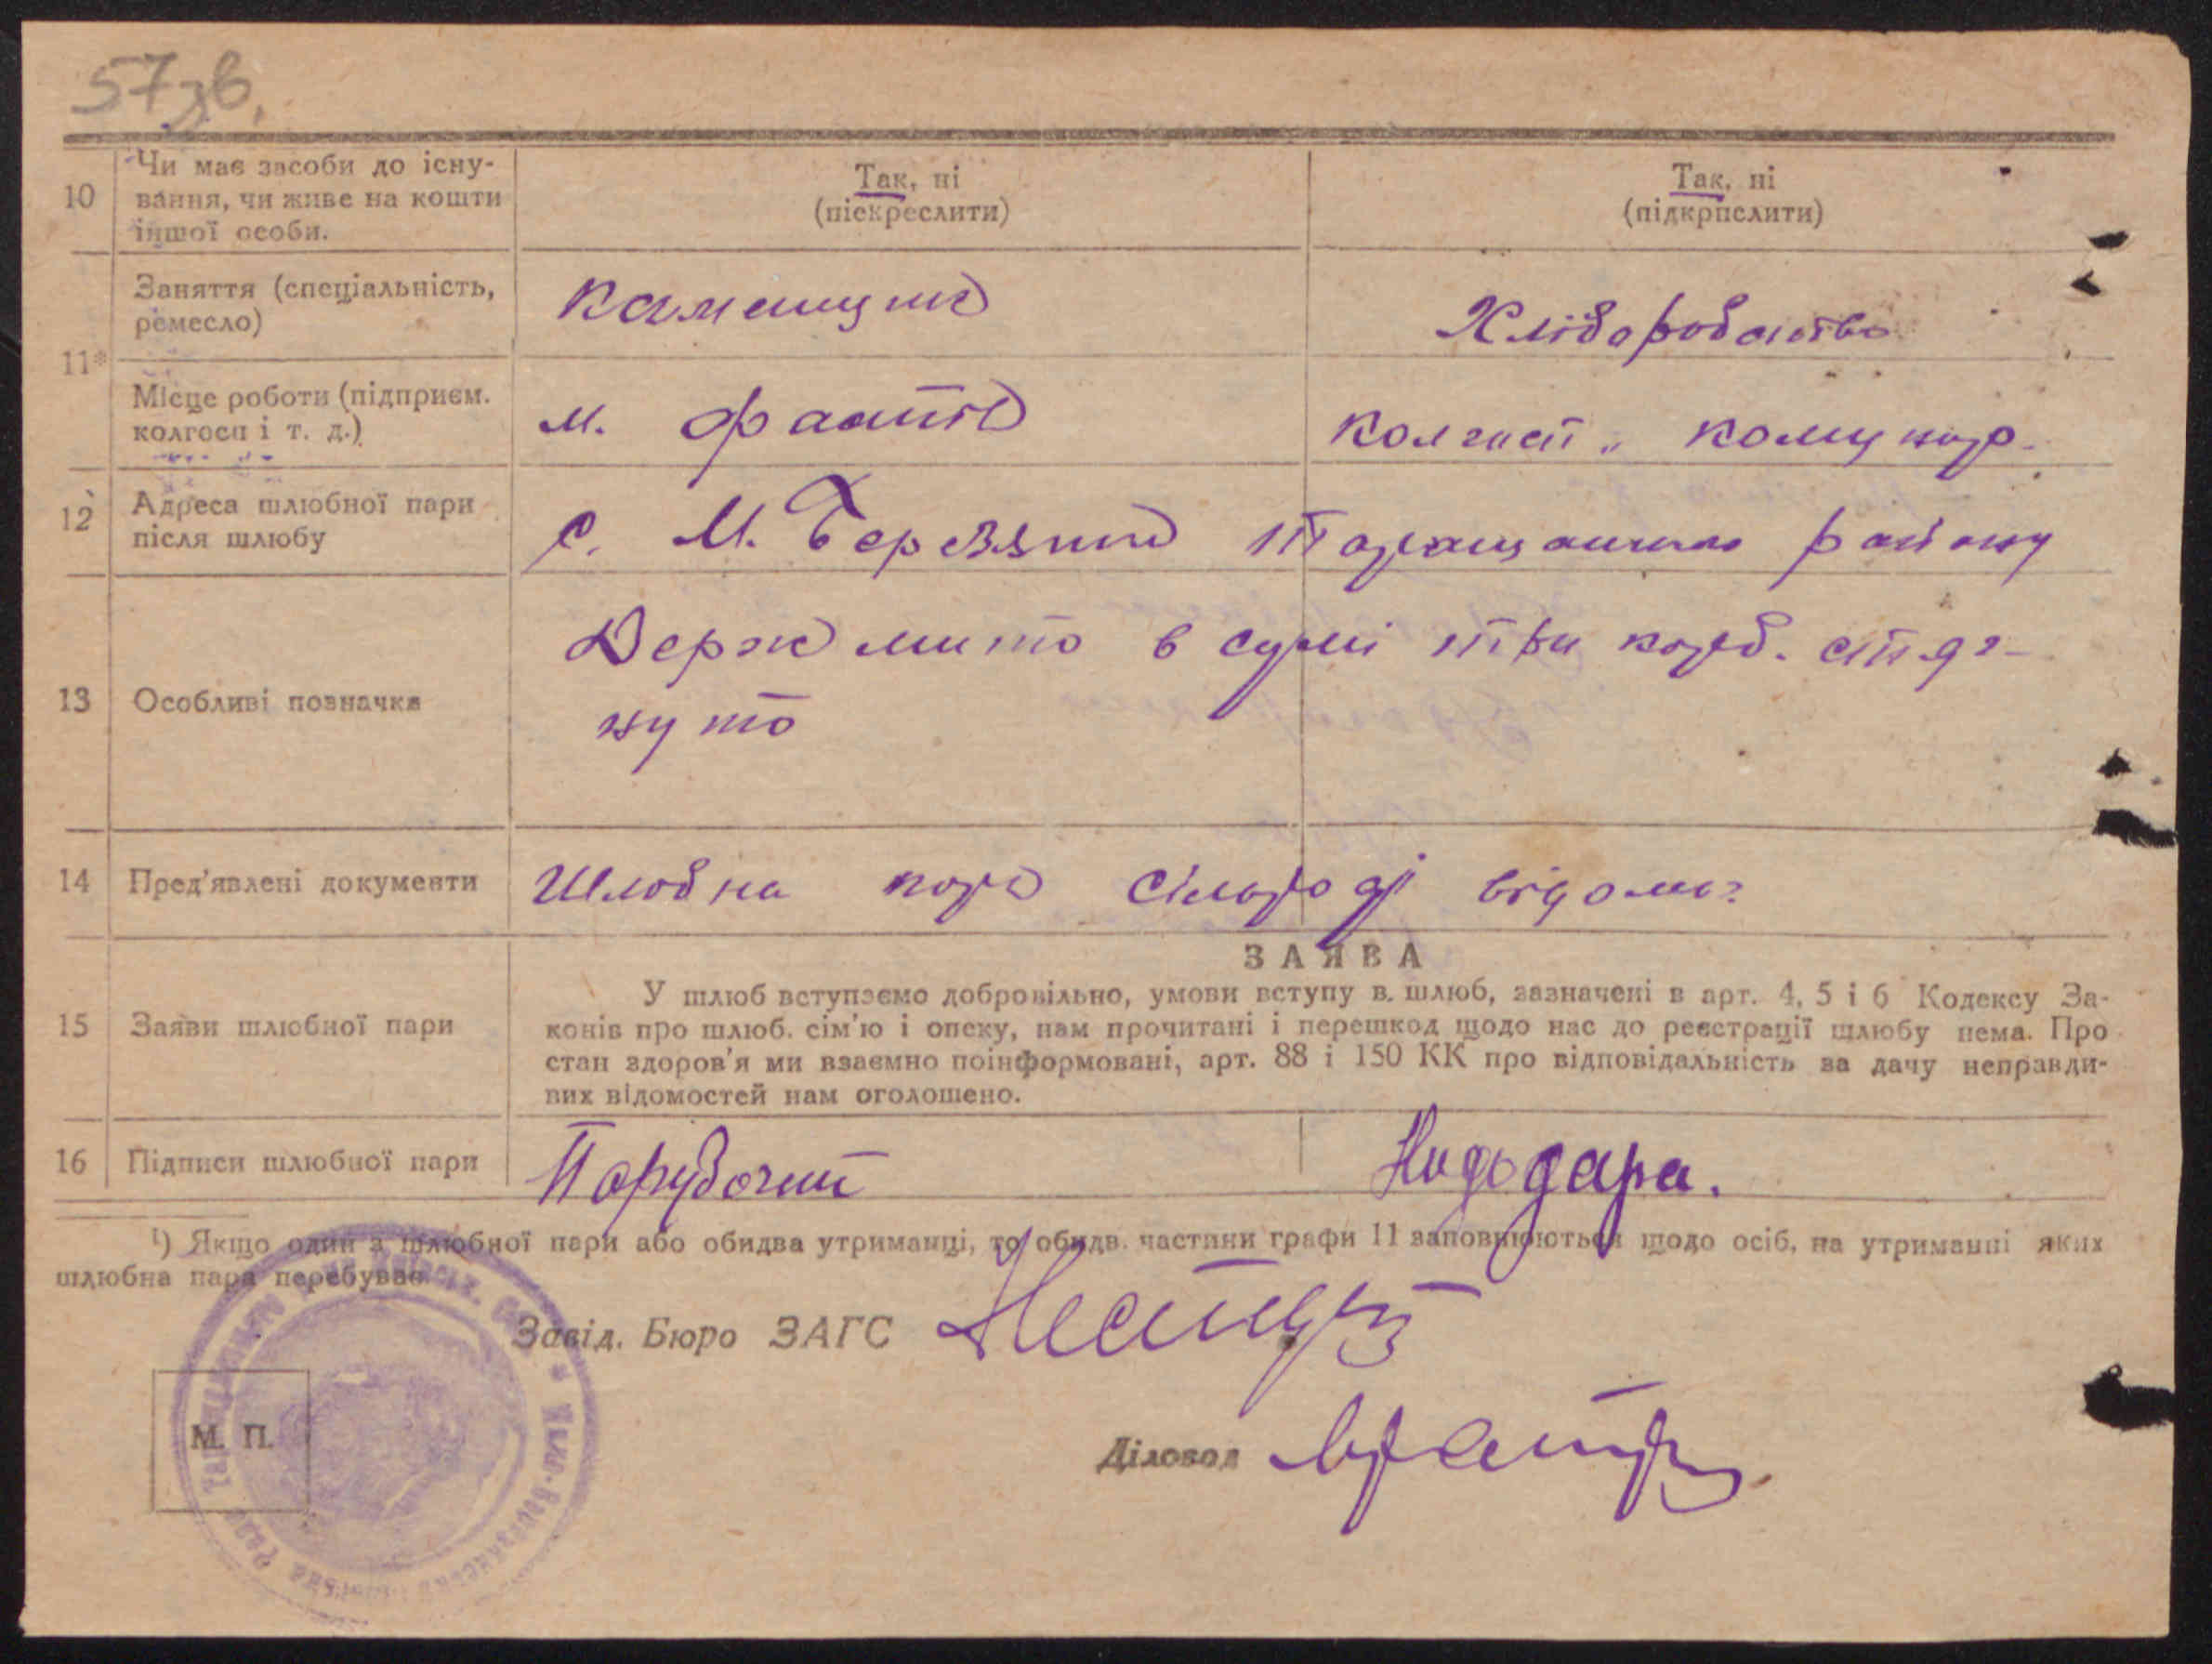 57 зв.
10
Чи має засоби до існу-
вання, чи живе на кошти
іншої особи.
Так, ні
(піскреслити)
Так, ні
(підкрпслити)
11*
Заняття (спеціальність,
ремесло)
Каменщик
Хліборобство
Місце роботи (підприєм.
колгосп і т. д.)
м. Фастів
колгосп „ комунар.
12
Адреса шлюбної пари
після шлюбу
с. М. Березянка Таращанського району
13
Особливі позначки
Держ мито в сумі три карб. стяг-
нуто
14
Пред'явлені документи
Шлюбна пара сільраді відома
15
Заяви шлюбної пари
ЗАЯВА
У шлюб вступаємо добровільно, умови вступу в. шлюб, зазначені в арт. 4, 5 і 6 Кодексу За-
конів про шлюб. сім'ю і опеку, нам прочитані і перешкод щодо нас до реєстрації шлюбу нема. Про
стан здоров'я ми взаємно поінформовані, арт. 88 і 150 КК про відповідальність за дачу неправди-
вих відомостей нам оголошено.
16
Підписи шлюбної пари
Парубочий
¹) Якщо один з шлюбної пари або обидва утриманці, то обидв. частини графи 11 заповнюються щодо осіб, на утриманні яких
шлюбна пара перебуває.
Завід. Бюро ЗАГС
М. П.
Діловод